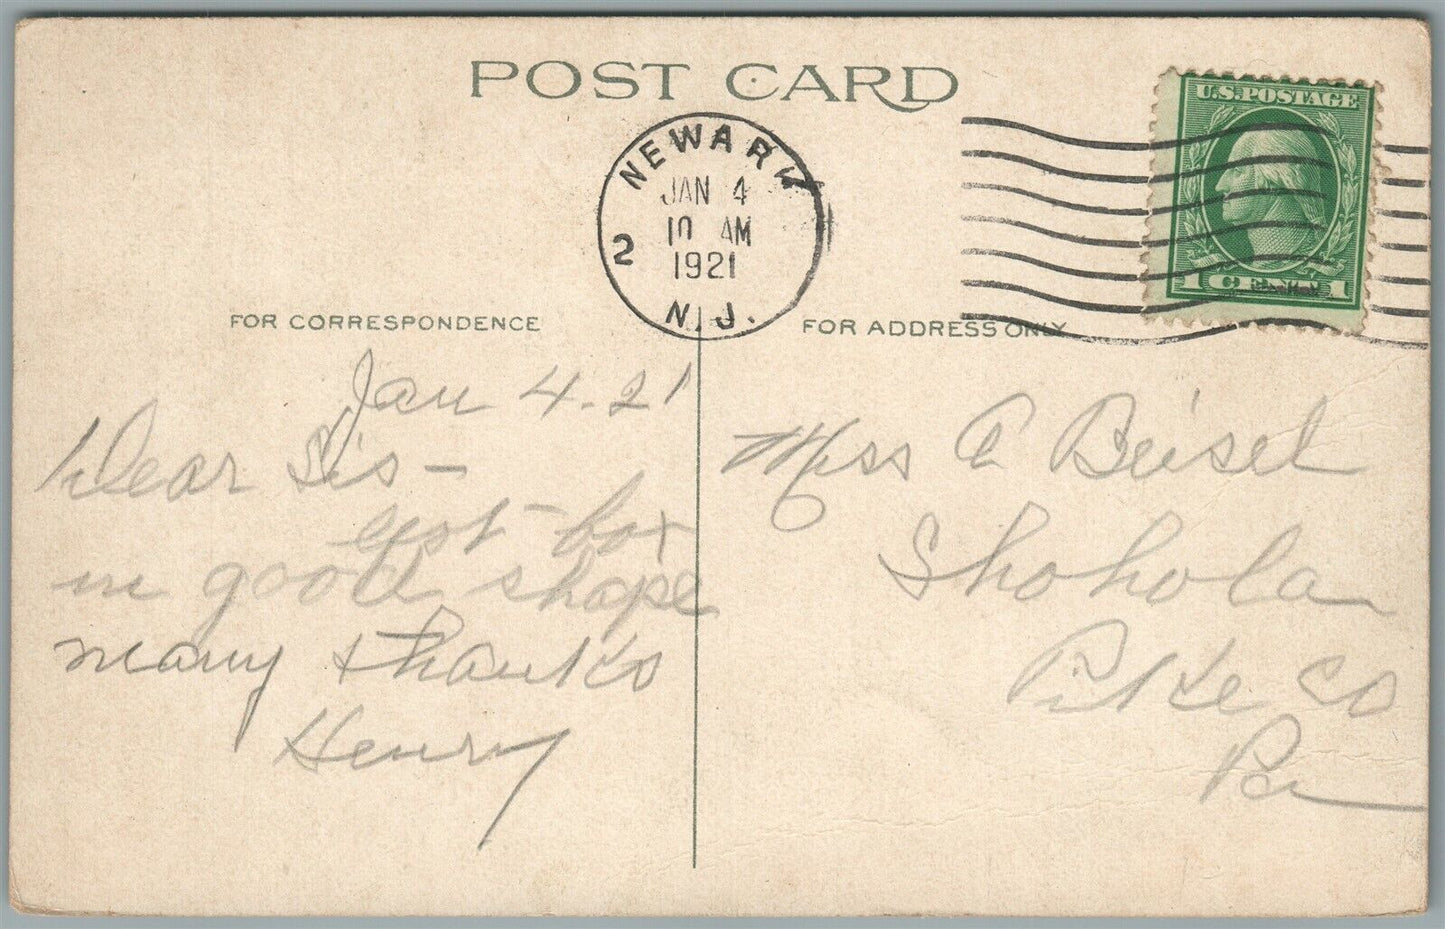 POST CARD
NEWARK
JAN 4
10 AM
1921
2
N.J.
U.S.POSTAGE
1 CENT 1
FOR CORRESPONDENCE
FOR ADDRESS ONLY
Jan 4-21
Dear Sis-
got box
in good shape
many thanks
Henry
Miss C Beisel
Shohola
Pike Co
Pa